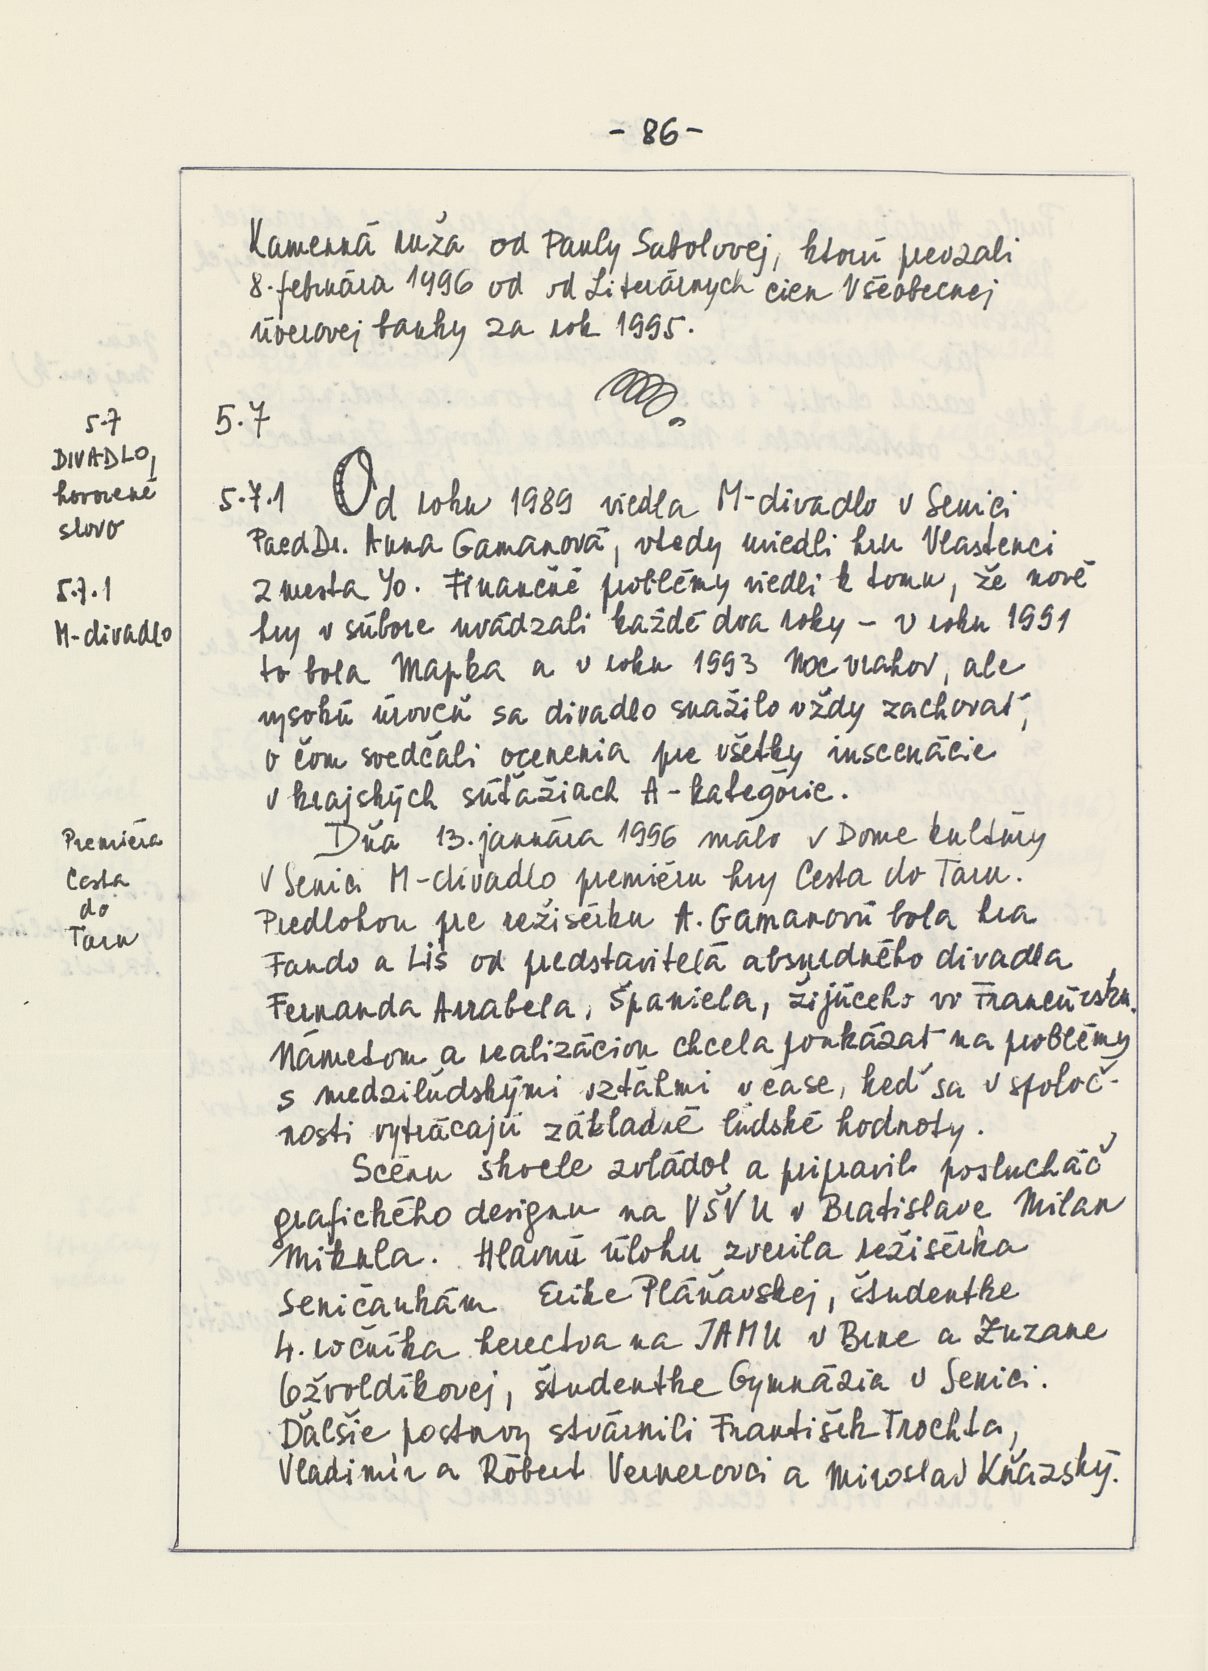 - 86 -
Kamenná ruža od Pauly Sabolovej, ktorú prevzali
8. februára 1996 od od Literárnych cien Všeobecnej
úverovej banky za rok 1995.
5.7
5.7
DIVADLO,
hovorené
slovo
5.7.1 Od roku 1989 viedla M-divadlo v Senici
PaedDr. Anna Gamanová, vtedy uviedli hru Vlastenci
5.7.1
z mesta Yo. Finančné problémy viedli k tomu, že nové
M-divadlo
hry v súbore uvádzali každé dva roky - v roku 1991
to bola Mapka a v roku 1993 Noc vrahov, ale
vysokú úroveň sa divadlo snažilo vždy zachovať,
o čom svedčali ocenenia pre všetky inscenácie
v krajských súťažiach A-kategórie.
Premiéra
Cesta
do
Taru
Dňa 13. januára 1996 malo v Dome kultúry
v Senici M-divadlo premiéru hry Cesta do Taru.
Predlohou pre režisérku A. Gamanovú bola hra
Fando a Liš od predstaviteľa absurdného divadla
Fernanda Arrabela, Španiela, žijúceho vo Francúzsku.
Námetom a realizáciou chcela poukázať na problémy
s medziľudskými vzťahmi v čase, keď sa v spoloč-
nosti vytrácajú základné ľudské hodnoty.
Scénu skvele zvládol a pripravil poslucháč
grafického designu na VŠVU v Bratislave Milan
Mikula. Hlavnú úlohu zverila režisérka
Seničankám Erike Pláňavskej, študentke
4. ročníka herectva na JAMU v Brne a Zuzane
Ožvoldíkovej, študentke Gymnázia v Senici.
Ďalšie postavy stvárnili František Trochta,
Vladimír a Róbert Vernerovci a Miroslav Kňazský.